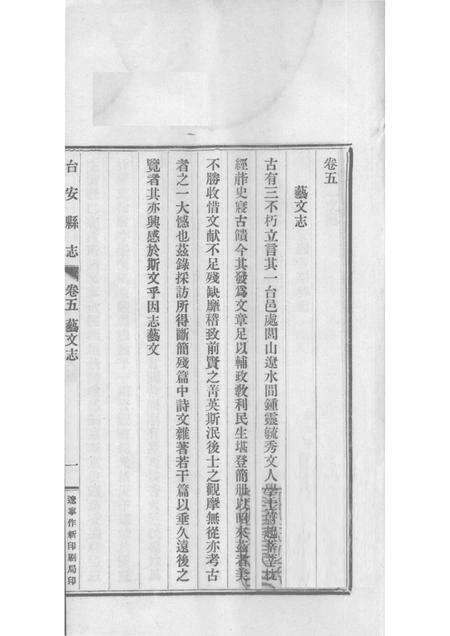 卷五
藝文志
古有三不朽立言其一台邑處閭山遼水間鍾靈毓秀文人學士蔚起菁莪枕
經葄史寢古饋今其發爲文章足以輔政敎利民生堪登簡册以昭來茲者美
不勝收惜文献不足殘缺靡稽致前賢之菁英斯泯後士之觀摩無從亦考古
者之一大憾也茲錄採訪所得斷簡殘篇中詩文雜著若干篇以垂久遠後之
覽者其亦興感於斯文乎因志藝文
台安縣志 卷五 藝文志 一 遼寧作新印刷局印